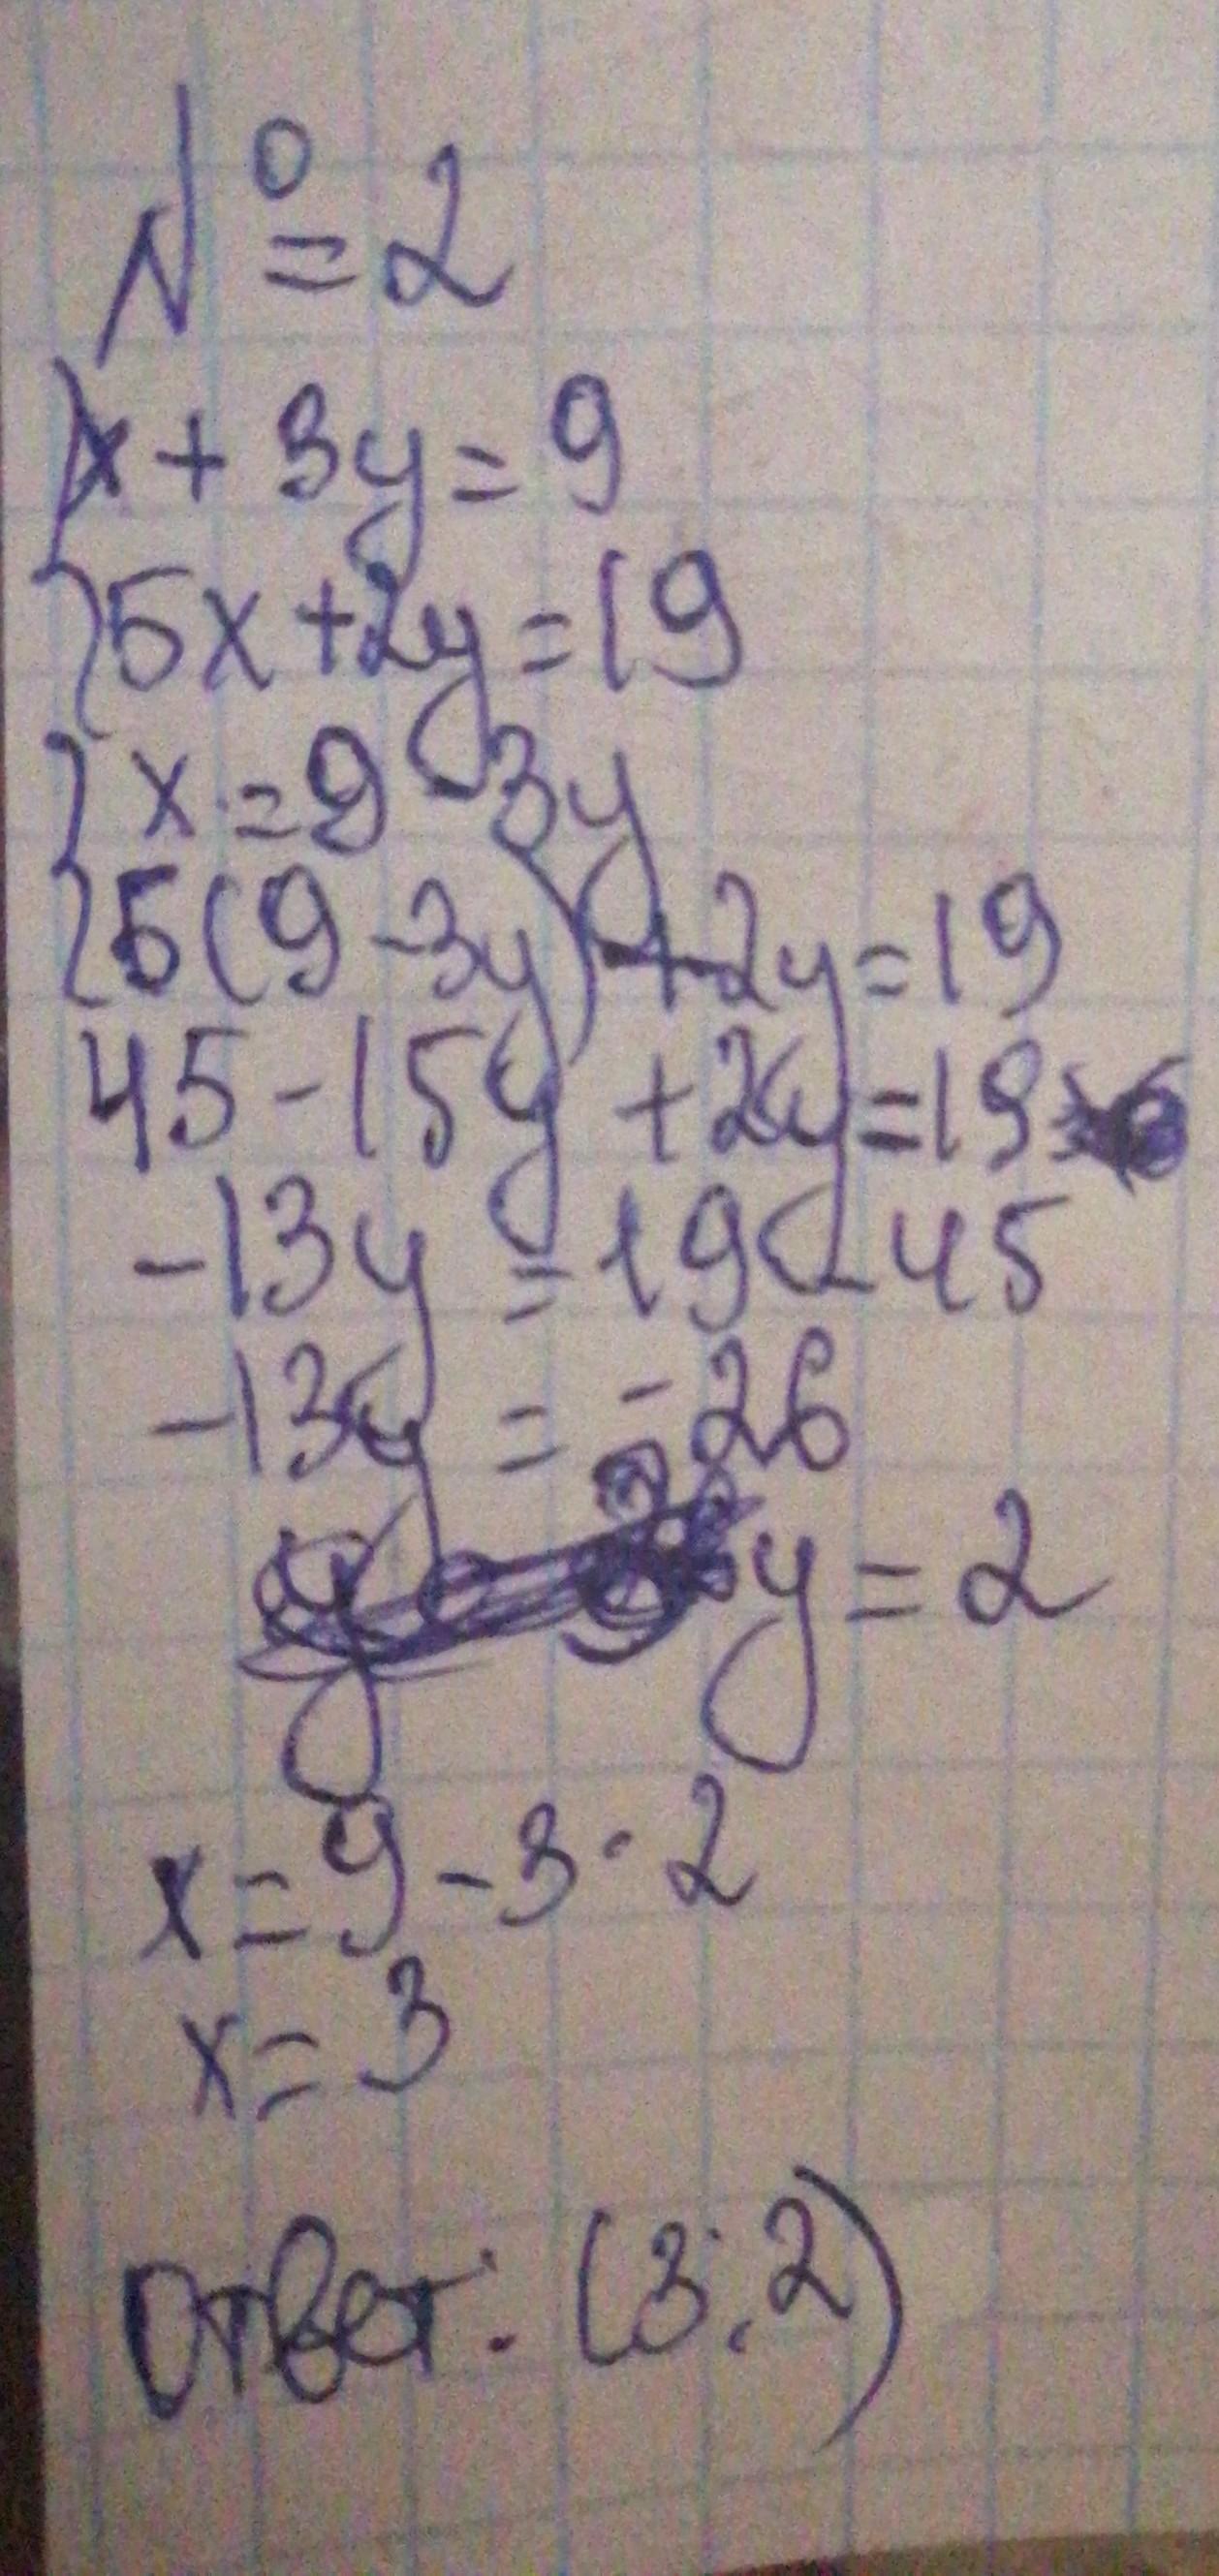 № 2
x + 3y = 9
5x + 2y = 19
x = 9 - 3y
5(9 - 3y) + 2y = 19
45 - 15y + 2y = 19
-13y = 19 - 45
-13y = -26
y = 2
x = 9 - 3 · 2
x = 3
Ответ: (3; 2)